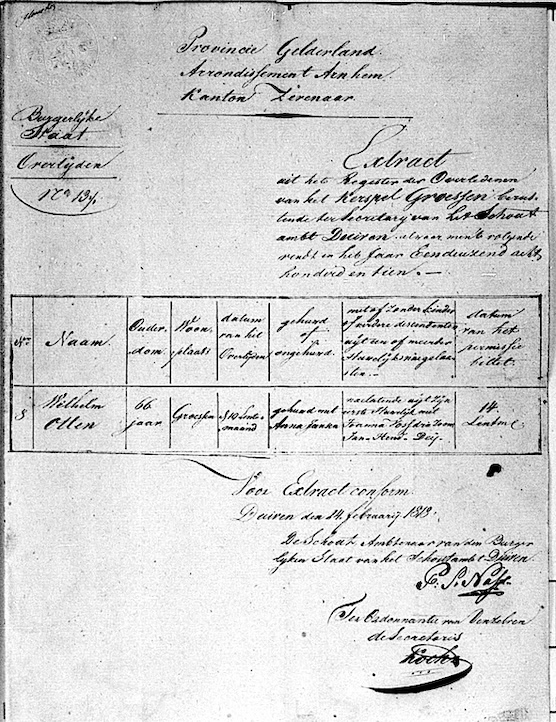 Provincie Gelderland
Arrondissement Arnhem
Kanton Zevenaar
Burgerlyke
Staat
Overlyden
N° 137.
Extract
uit het Register der Overledenen
van het Kerspel Groessen berus
tende ter Secretary van het Schout
ambt Duiven alwaar men't volgende
vendt in het Jaar Eenduizend acht
honderd en tien.
No
Naam.
Ouder
dom.
Woon
plaats
datum
van het
Overlyden
gehuwd
of
ongehuwd.
met of zonder kinder
of verdere descendenten
uijt een of meerder
Huwelyks nagelaa
ten
datum
van het
permissie
billet.
8
Wilhelm
Otten
66
jaar
Groessen
10 Lente
maand
gehuwd met
Anna
nalatende uijt zyn
eerste Huwelyk met
14
Lentm
Voor Extract conform
Duiven den 14 february 1819.
De Schout Ambtenaar van den Burger
lyken Staat van het Schoutambt Duiven
Ter Ordonnantie van Denzelven
de Secretaris
Koch